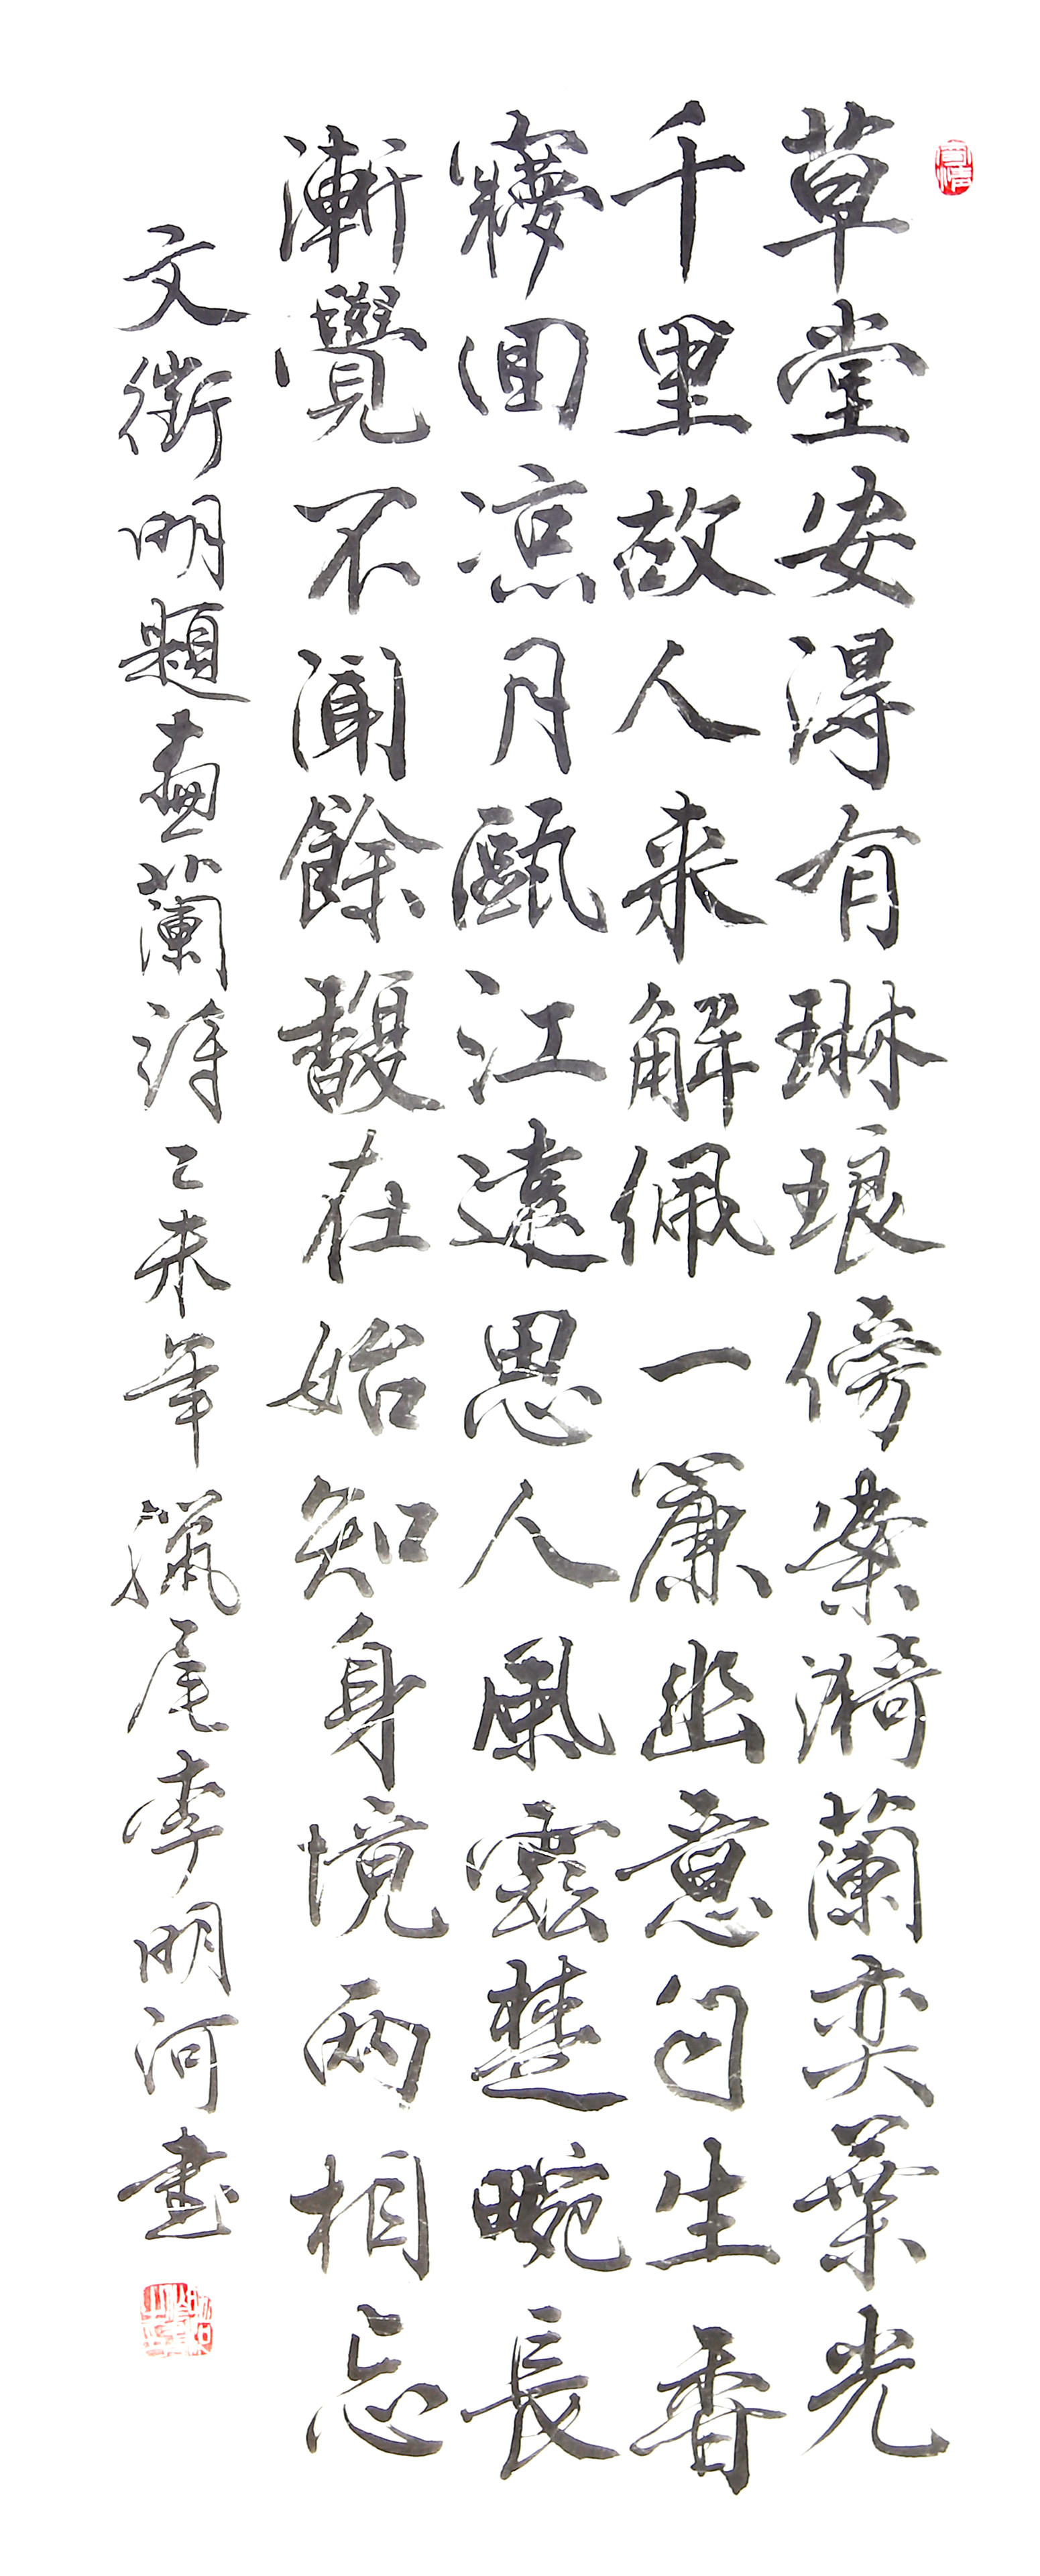 草堂安得有琳琅傍案漪蘭奕葉光
千里故人来解佩一簾幽意自生香
㝱回凉月甌江遠思人風雲楚畹長
漸覺不聞餘馥在始知身境兩相忘
文徵明題畫蘭詩乙未年臘尾李明河書